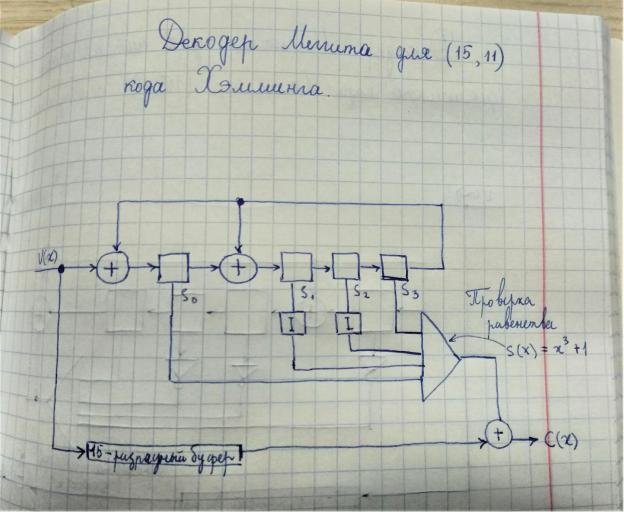 Декодер Меггита для (15, 11)
кода Хэмминга.
V(x)
+
+
S₀
S₁
S₂
S₃
I
I
Проверка
равенства
S(x) = x³+1
15-разрядный буфер
+
C(x)